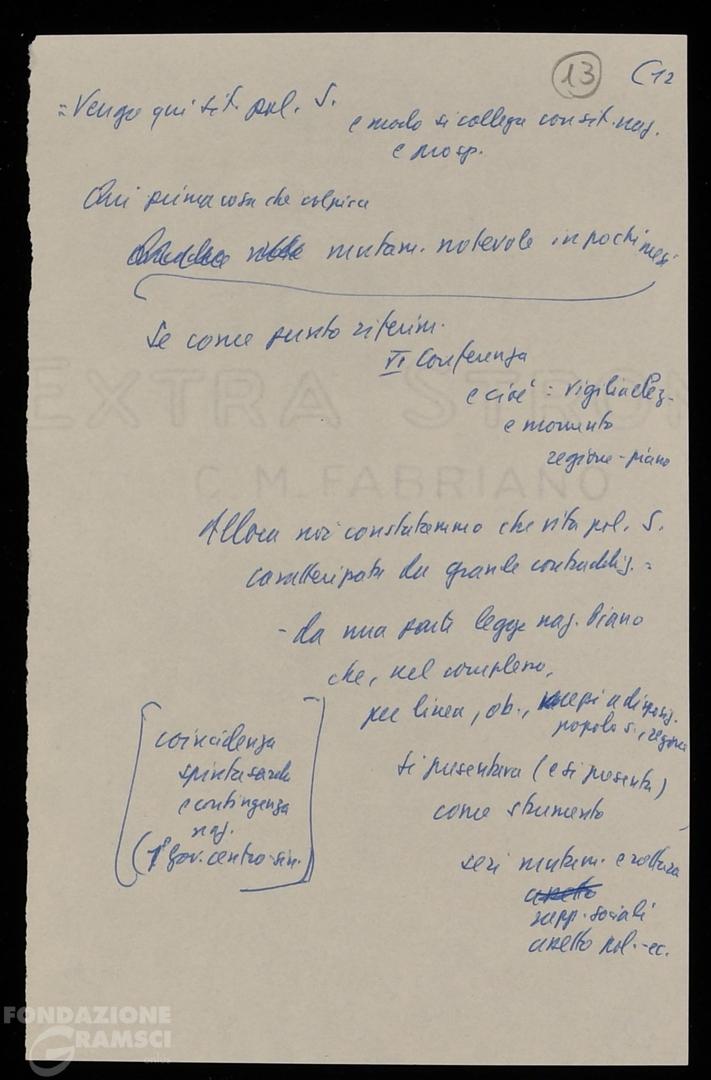 13 (12
= Vengo qui sit. pol. S.
e modo si collega con sit. naz.
e prosp.
Qui prima cosa che colpisce
mutam. notevole in pochi mesi
Se come punto riferim.
VI Conferenza
e cioè = vigilia elez.
e momento
regione - piano
Allora noi constatammo che vita pol. S.
caratterizzata da grande contraddiz. =
- da una parte legge naz. Piano
che, nel complesso,
per linea, ob., mezzi a disposiz.
popolo s., regione
si presentava (e si presenta)
come strumento
seri mutam. e rottura
assetto
rapp. sociali
assetto pol.-ec.
coincidenza
spinta sarda
e contingenza
naz.
(1° gov. centro-sin.)
EXTRA STRON
C.M. FABRIANO
FONDAZIONE
GRAMSCI